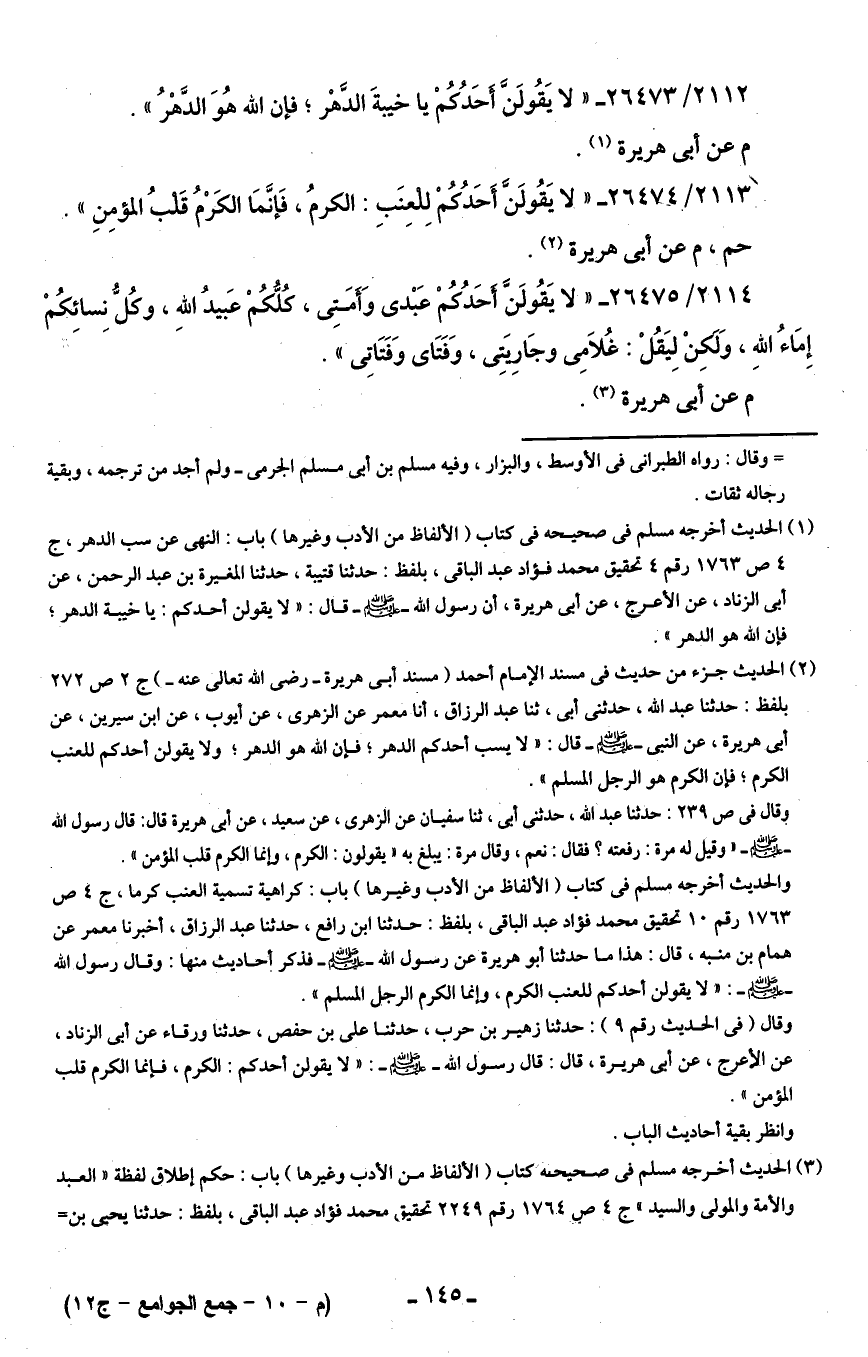 ٢١١٢/ ٢٦٤٧٣ـ « لا يَقُولَنَّ أَحَدُكُمْ يا خيبةَ الدَّهْر ؛ فإن الله هُوَ الدَّهْرُ » .
م عن أبى هريرة (١) .
٢١١٣/ ٢٦٤٧٤ـ « لا يَقُولَنَّ أَحَدُكُمْ لِلْعِنَبِ : الكرمُ ، فَإِنَّمَا الكَرْمُ قَلْبُ المؤمِنِ » .
حم ، م عن أبى هريرة (٢) .
٢١١٤/ ٢٦٤٧٥ـ « لا يَقُولَنَّ أَحَدُكُمْ عَبْدى وَأَمَتِى ، كُلُّكُمْ عَبيدُ اللهِ ، وكُلُّ نِسائِكُمْ
إِمَاءُ اللهِ ، وَلَكِنْ لِيَقُلْ : غُلَامِى وجَارِيَتِى ، وفَتَاى وفَتَاتِى » .
م عن أبى هريرة (٣) .
= وقال : رواه الطبرانى فى الأوسط ، والبزار ، وفيه مسلم بن أبى مسلم الجرمى ـ ولم أجد من ترجمه ، وبقية
رجاله ثقات .
(١) الحديث أخرجه مسلم فى صحيحه فى كتاب ( الألفاظ من الأدب وغيرها ) باب : النهى عن سب الدهر ، ج
٤ ص ١٧٦٣ رقم ٤ تحقيق محمد فؤاد عبد الباقى ، بلفظ : حدثنا قتيبة ، حدثنا المغيرة بن عبد الرحمن ، عن
أبى الزناد ، عن الأعرج ، عن أبى هريرة ، أن رسول الله ـ ﷺ ـ قال : « لا يقولن أحدكم : يا خيبة الدهر ؛
فإن الله هو الدهر » .
(٢) الحديث جزء من حديث فى مسند الإمام أحمد ( مسند أبى هريرة ـ رضى الله تعالى عنه ـ ) ج ٢ ص ٢٧٢
بلفظ : حدثنا عبد الله ، حدثنى أبى ، ثنا عبد الرزاق ، أنا معمر عن الزهرى ، عن أيوب ، عن ابن سيرين ، عن
أبى هريرة ، عن النبى ـ ﷺ ـ قال : « لا يسب أحدكم الدهر ؛ فإن الله هو الدهر ؛ ولا يقولن أحدكم للعنب
الكرم ؛ فإن الكرم هو الرجل المسلم » .
وقال فى ص ٢٣٩ : حدثنا عبد الله ، حدثنى أبى ، ثنا سفيان عن الزهرى ، عن سعيد ، عن أبى هريرة قال: قال رسول الله
ـ ﷺ ـ « وقيل له مرة : رفعته ؟ فقال : نعم ، وقال مرة : يبلغ به « يقولون : الكرم ، وإنما الكرم قلب المؤمن » .
والحديث أخرجه مسلم فى كتاب ( الألفاظ من الأدب وغيرها ) باب : كراهية تسمية العنب كرما ، ج ٤ ص
١٧٦٣ رقم ١٠ تحقيق محمد فؤاد عبد الباقى ، بلفظ : حدثنا ابن رافع ، حدثنا عبد الرزاق ، أخبرنا معمر عن
همام بن منبه ، قال : هذا ما حدثنا أبو هريرة عن رسول الله ـ ﷺ ـ فذكر أحاديث منها : وقال رسول الله
ـ ﷺ ـ : « لا يقولن أحدكم للعنب الكرم ، وإنما الكرم الرجل المسلم » .
وقال ( فى الحديث رقم ٩ ) : حدثنا زهير بن حرب ، حدثنا على بن حفص ، حدثنا ورقاء عن أبى الزناد ،
عن الأعرج ، عن أبى هريرة ، قال : قال رسول الله ـ ﷺ ـ : « لا يقولن أحدكم : الكرم ، فإنما الكرم قلب
المؤمن » .
وانظر بقية أحاديث الباب .
(٣) الحديث أخرجه مسلم فى صحيحه كتاب ( الألفاظ من الأدب وغيرها ) باب : حكم إطلاق لفظة « العبد
والأمة والمولى والسيد » ج ٤ ص ١٧٦٤ رقم ٢٢٤٩ تحقيق محمد فؤاد عبد الباقى ، بلفظ : حدثنا يحيى بن=
ـ ١٤٥ ـ
(م - ١٠ - جمع الجوامع - ج١٢)